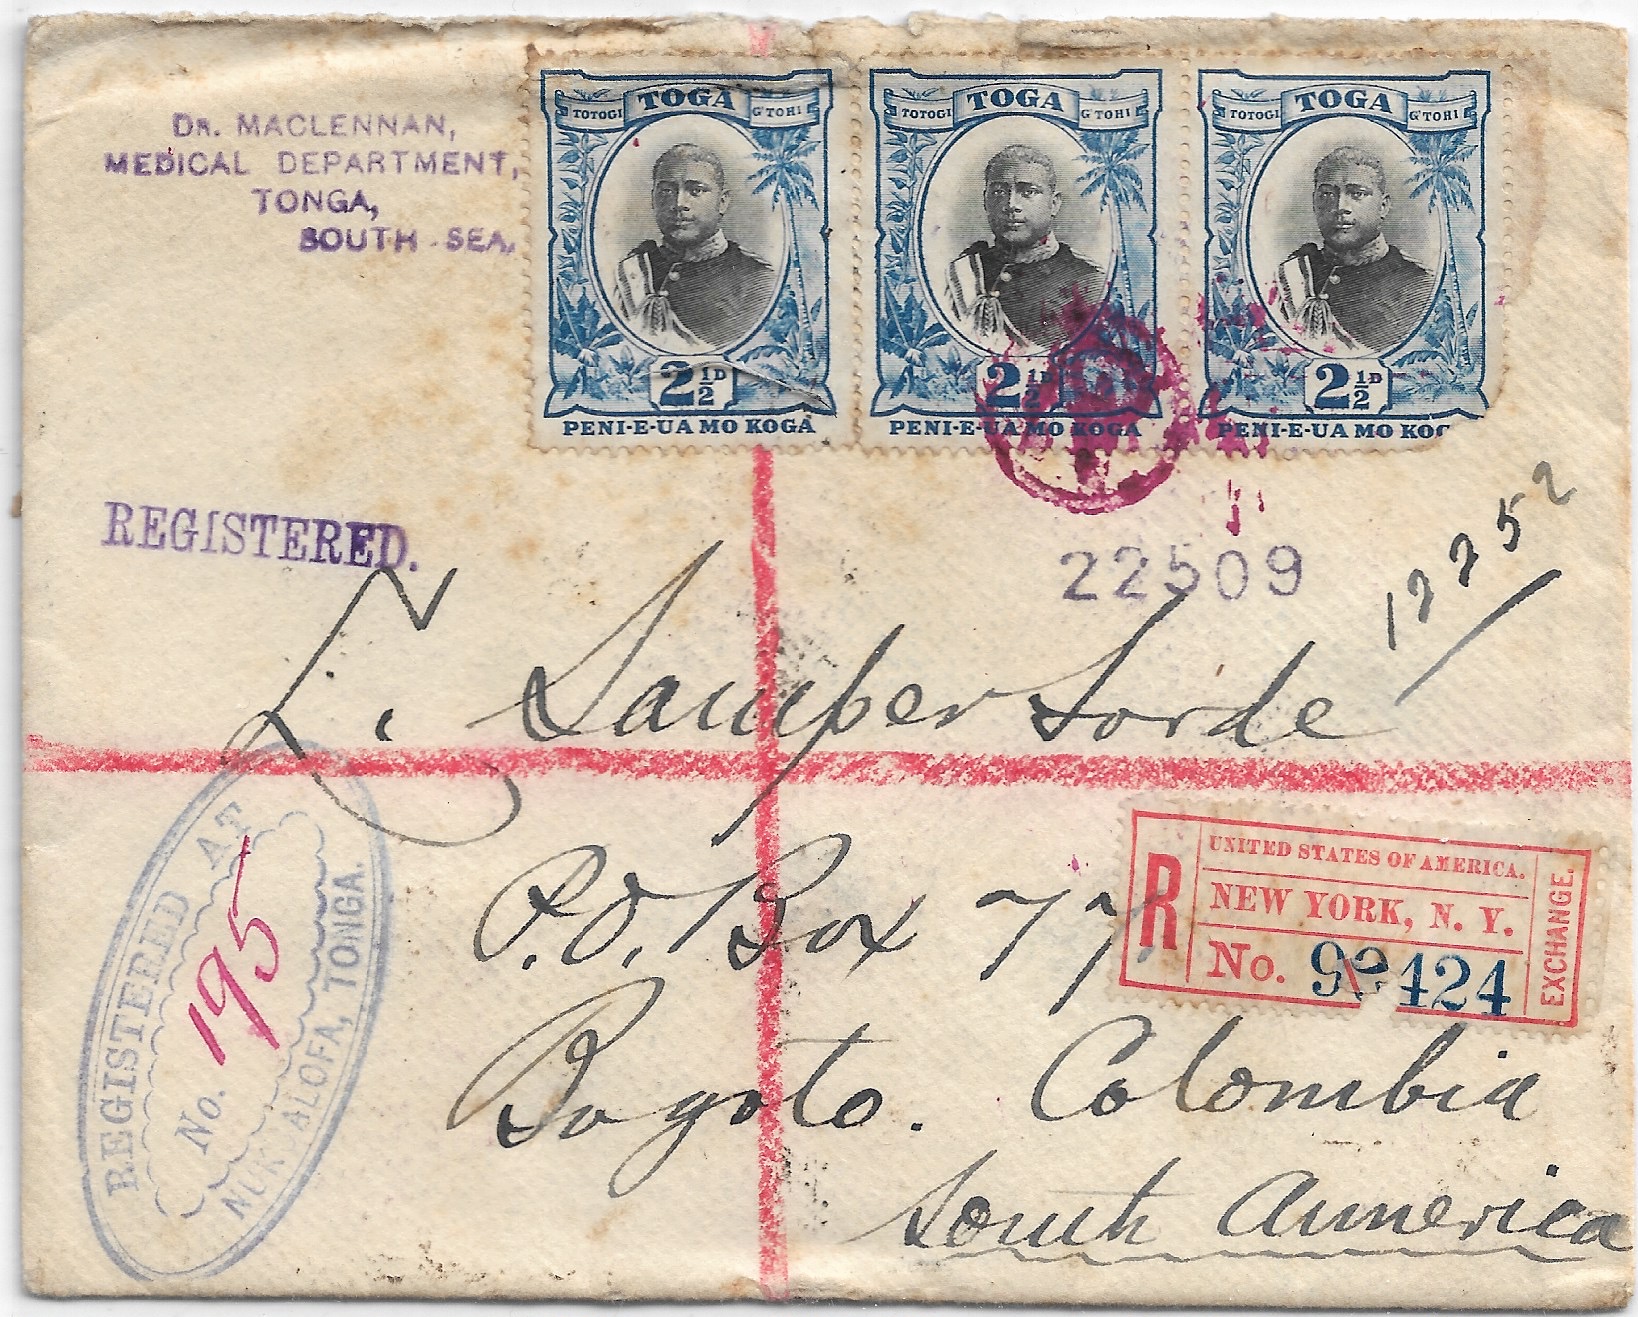 DR. MACLENNAN,
MEDICAL DEPARTMENT,
TONGA,
SOUTH SEA.
TOTOGI TOGA G'TOHI
2½D
PENI-E-UA MO KOGA
TOTOGI TOGA G'TOHI
2½D
PENI-E-UA MO KOGA
TOTOGI TOGA G'TOHI
2½D
PENI-E-UA MO KOG
REGISTERED.
22509
12252
L. Samper Sorde
P.O. Box 77
Bogoto. Colombia
South America
R
UNITED STATES OF AMERICA.
NEW YORK, N. Y.
No. 92424
EXCHANGE.
REGISTERED AT
No. 195
NUKUALOFA, TONGA.